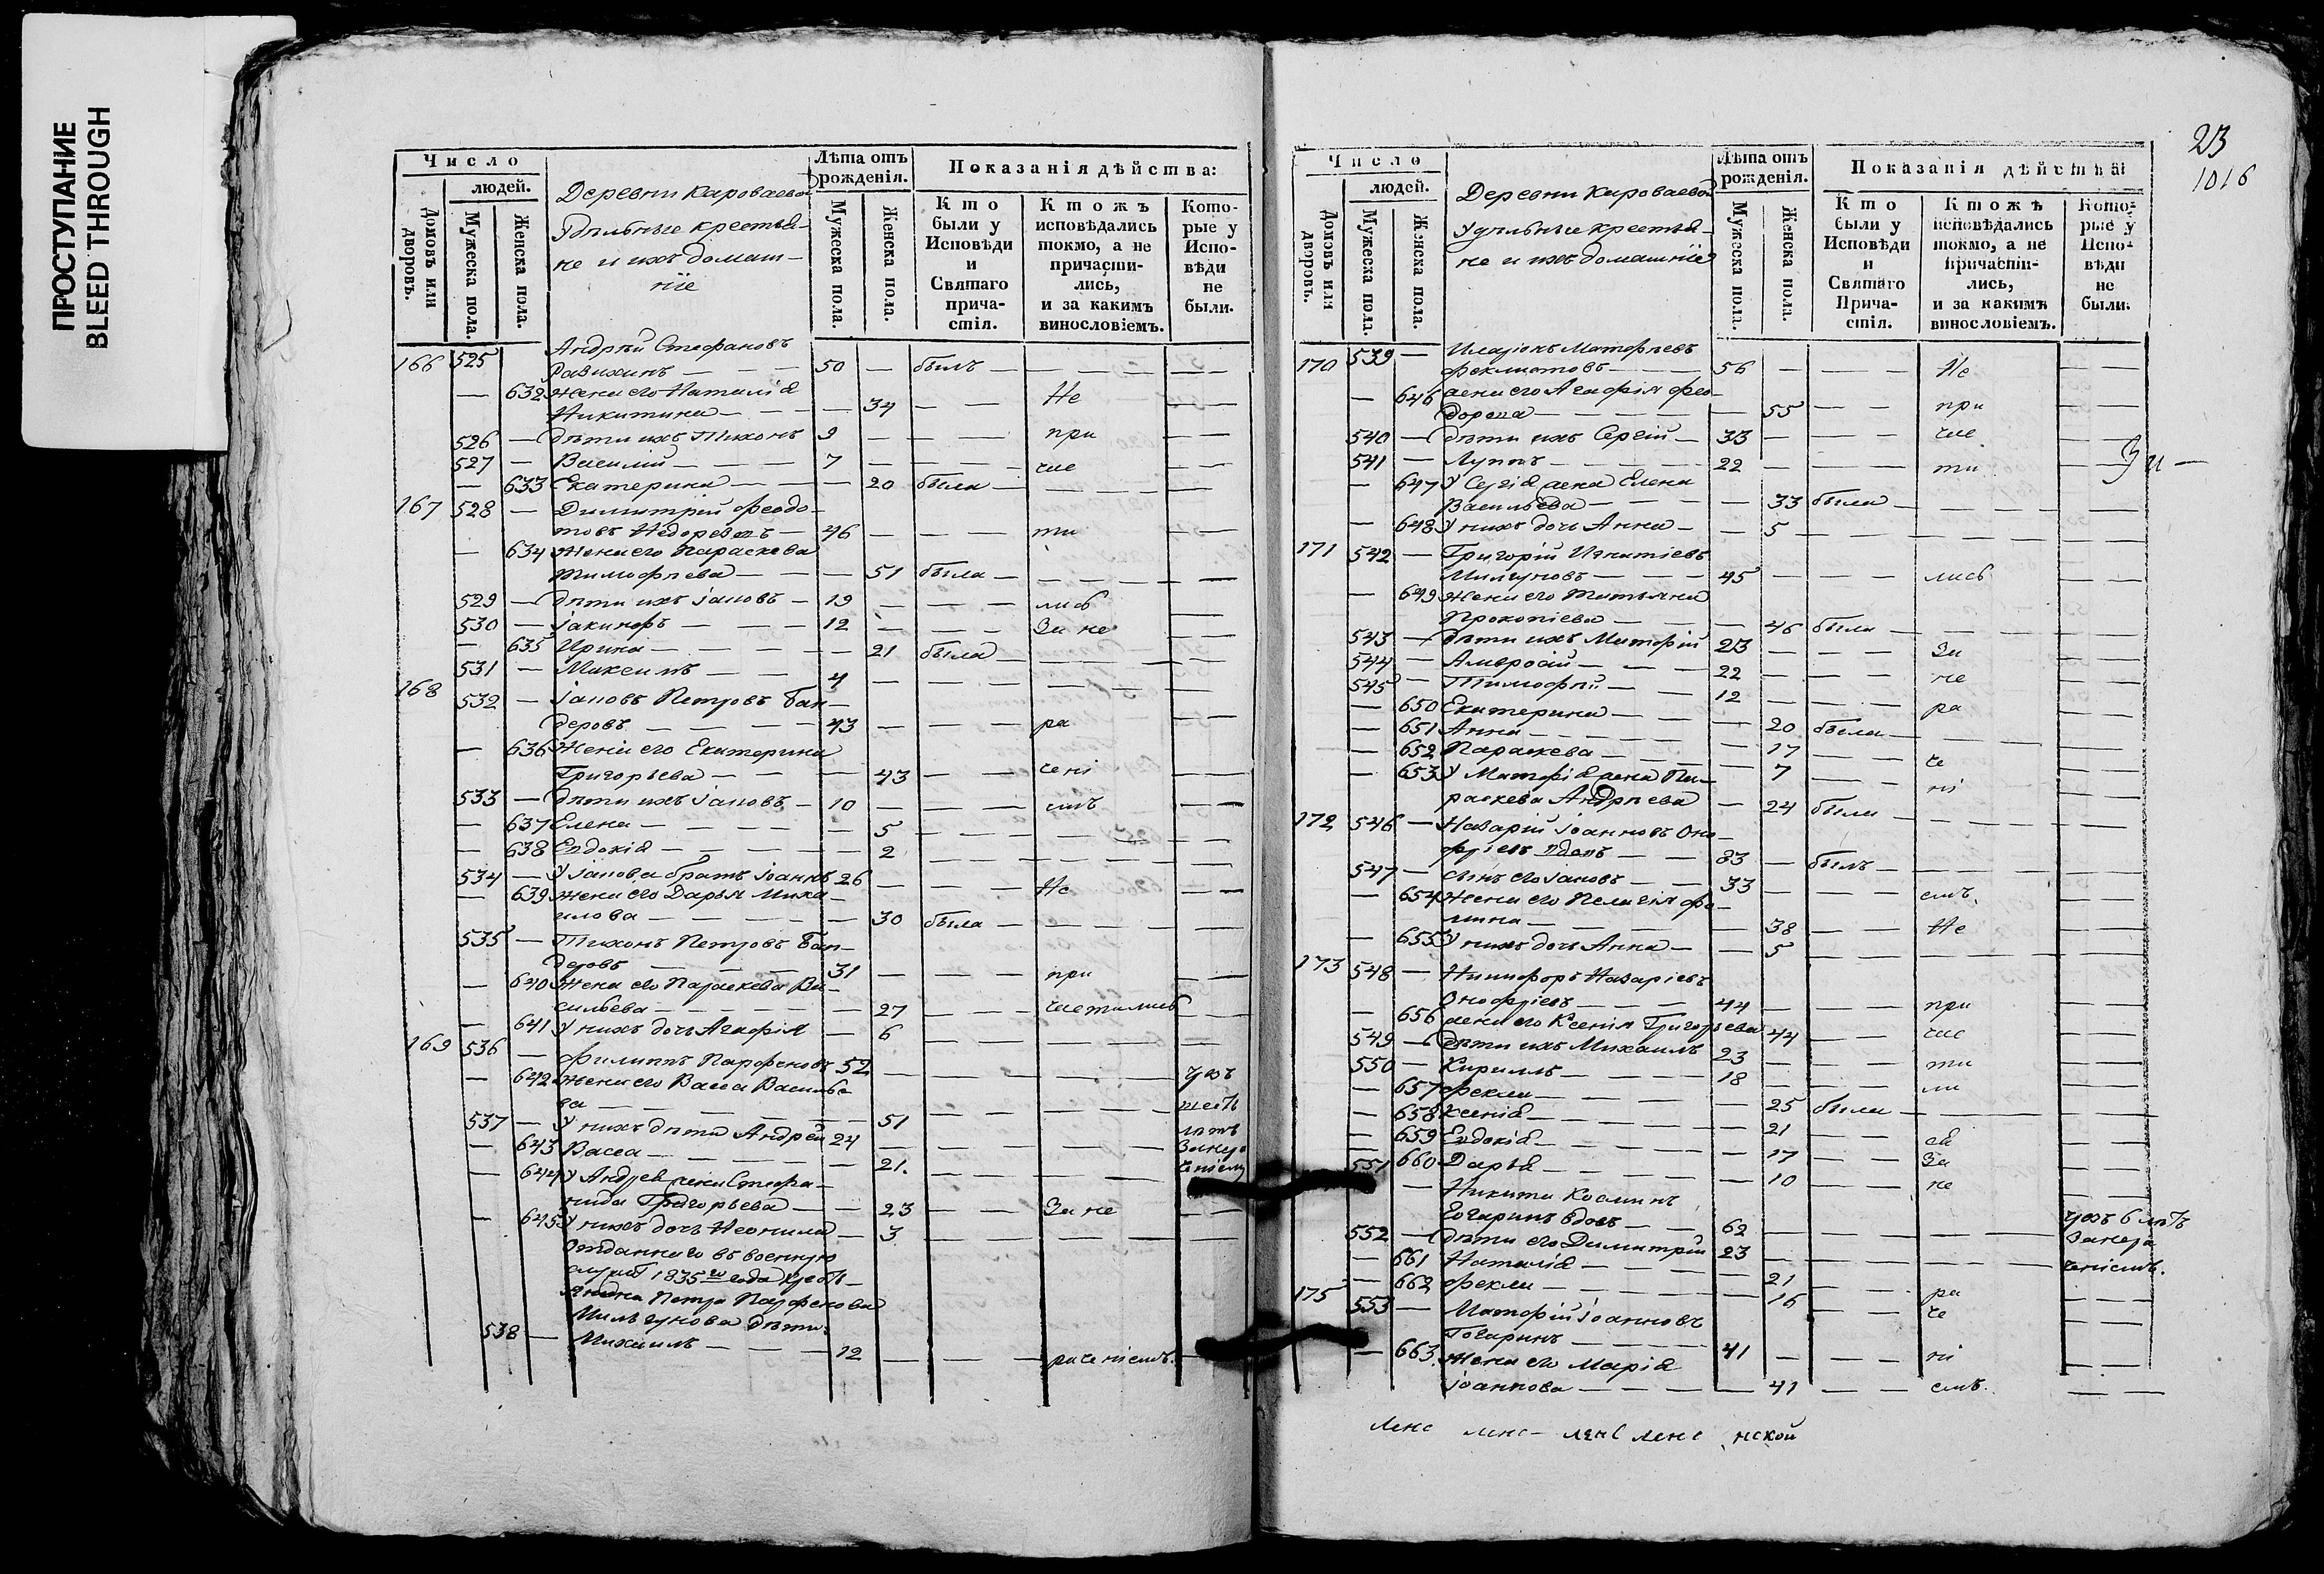 ПРОСТУПАНИЕ
BLEED THROUGH
Число
людей.
Домовъ или дворовъ.
Мужеска пола.
Женска пола.
Деревни Кароваевой
Удѣльные крестья-
не и ихъ домаш-
ніе
Лѣта отъ рожденія.
Мужеска пола.
Женска пола.
Показанія дѣйства:
Кто были у Исповѣди и Святаго причастія.
Ктожъ исповѣдались токмо, а не причастились, и за какимъ винословіемъ.
Которые у Исповѣди не были.
166 525 Андрѣй Стефановъ
50 — былъ — — — —
— 632 Жена его Наталіа
Никитина — — — 34 — — Не — —
526 — дѣти ихъ Тихонъ 9 — — — при — —
527 — Василій — — — 7 — — — час — —
— 633 Екатерина — — — 20 была — — — —
167 528 — Димитрій Феодо-
товъ — 46 — — — ти — —
— 634 Жена его Параскева
Тимофѣева — — — 51 была — — — —
529 — дѣти ихъ Іаковъ — 19 — — — лись —
530 — Іакинфъ — — — 12 — — — За не — —
— 635 Ирина — — — — 21 была — — — —
531 — Максимъ — — 4 — — — — — —
168 532 — Іаковъ Петровъ Бан-
деровъ — — — 43 — — — ра — —
— 636 Жена его Екатерина
Григорьева — — — 43 — — чені — —
533 — дѣти ихъ Іаковъ — 10 — — — емъ — —
— 637 Елена — — — — 5 — — — — —
— 638 Евдокіа — — — — 2 — — — — —
534 — У Іакова братъ Іоаннъ 26 — — — Не — —
— 639 Жена его Дарья Миха-
илова — — — — 30 была — — — —
535 — Тихонъ Петровъ Бан-
деровъ — — — 31 — — — при — —
— 640 Жена его Параскева Ва-
сильева — — — — 27 — — частились — —
— 641 У нихъ дочь Агафія — 6 — — — — —
169 536 — Филиппъ Парфеновъ 52 — — — — чрезъ
— 642 Жена его Васса Василье-
ва — — — — 51 — — — — шесть
537 — У нихъ дѣти Андрей 24 — — — — лѣтъ
— 643 Васса — — — — 21. — — — — За нера
— 644 У Андрея жена Стефа- ченіемъ
нида Григорьева — — 23 — — За не — —
— 645 У нихъ дочь Неонила — 3 — — — — —
Отданнаго въ военную
службу 1835го года кресть-
янина Петра Парфенова
Мильгунова дѣти:
538 — Михаилъ — — — 12 — — — раченіемъ. —
23
1016
Число
людей.
Домовъ или дворовъ.
Мужеска пола.
Женска пола.
Деревни Кароваевой
Удѣльные крестья-
не и ихъ домашніе
Лѣта отъ рожденія.
Мужеска пола.
Женска пола.
Показанія дѣйства:
Кто были у Исповѣди и Святаго Причастія.
Ктожъ исповѣдались токмо, а не причастились, и за какимъ винословіемъ.
Которые у Исповѣди не были.
170 539 — Иларіонъ Матфѣевъ
Феклистовъ — — 56 — — — Не — —
— 646 жена его Агафія Фео-
дорова — — — — 55 — — при — —
540 — дѣти ихъ Сергій — 33 — — — час — —
541 — Луппъ — — — 22 — — — ти — —
— 647 У Сергіа жена Елена
Васильева — — — 33 была — — — —
— 648 У нихъ дочь Анна — — 5 — — — — —
171 542 — Григорій Игнатіевъ
Милгуновъ — — — 45 — — — лись — —
— 649 Жена его Татьяна
Прокопіева — — — 46 была — — — —
543 — дѣти ихъ Матфій 23 — — — За — —
544 — Амвросій — — — 22 — — — не — —
545 — Тимофѣй — — 12 — — — ра — —
— 650 Екатерина — — — 20 была — — — —
— 651 Анна — — — — 17 — — че — —
— 652 Параскева — — — 7 — — ні — —
— 653 У Матфіа жена Па-
раскева Андрѣева — 24 была — — — —
172 546 — Назарій Іоанновъ Оно-
фріевъ вдовъ — — 83 — былъ — — — —
547 — сынъ его Іаковъ — — 33 — — — емъ. — —
— 654 Жена его Пелагія Фо-
мина — — — — 38 — — Не — —
— 655 У нихъ дочь Анна — — 5 — — — — —
173 548 — Никифоръ Назаріевъ
Онофріевъ — — — 44 — — — при — —
— 656 жена его Ксенія Григорьева 44 — — час — —
549 — дѣти ихъ Михаилъ 23 — — — ти — —
550 — Кириллъ — — — 18 — — — ли — —
— 657 Фекла — — — — 25 была — — — —
— 658 Ксеніа — — — — 21 — — сь — —
— 659 Евдокіа — — — — 17 — — За — —
— 660 Дарьа — — — — 10 — — не — —
551 — Никита Косминъ
Гогаринъ вдовъ — — 62 — — — — чрезъ 6 лѣтъ
552 — дѣти его Димитрій 23 — — — — За нера
— 661 Наталіа — — — — 21 — — — — ченіемъ.
— 662 Фекла — — — — 16 — — ра — —
175 553 — Матфій Іоанновъ че
Гогаринъ — — — 41 — — — ні — —
— 663. Жена его Маріа
Іоаннова — — — — 41 — — емъ. — —
Ленс ленс- ленс ленс нской